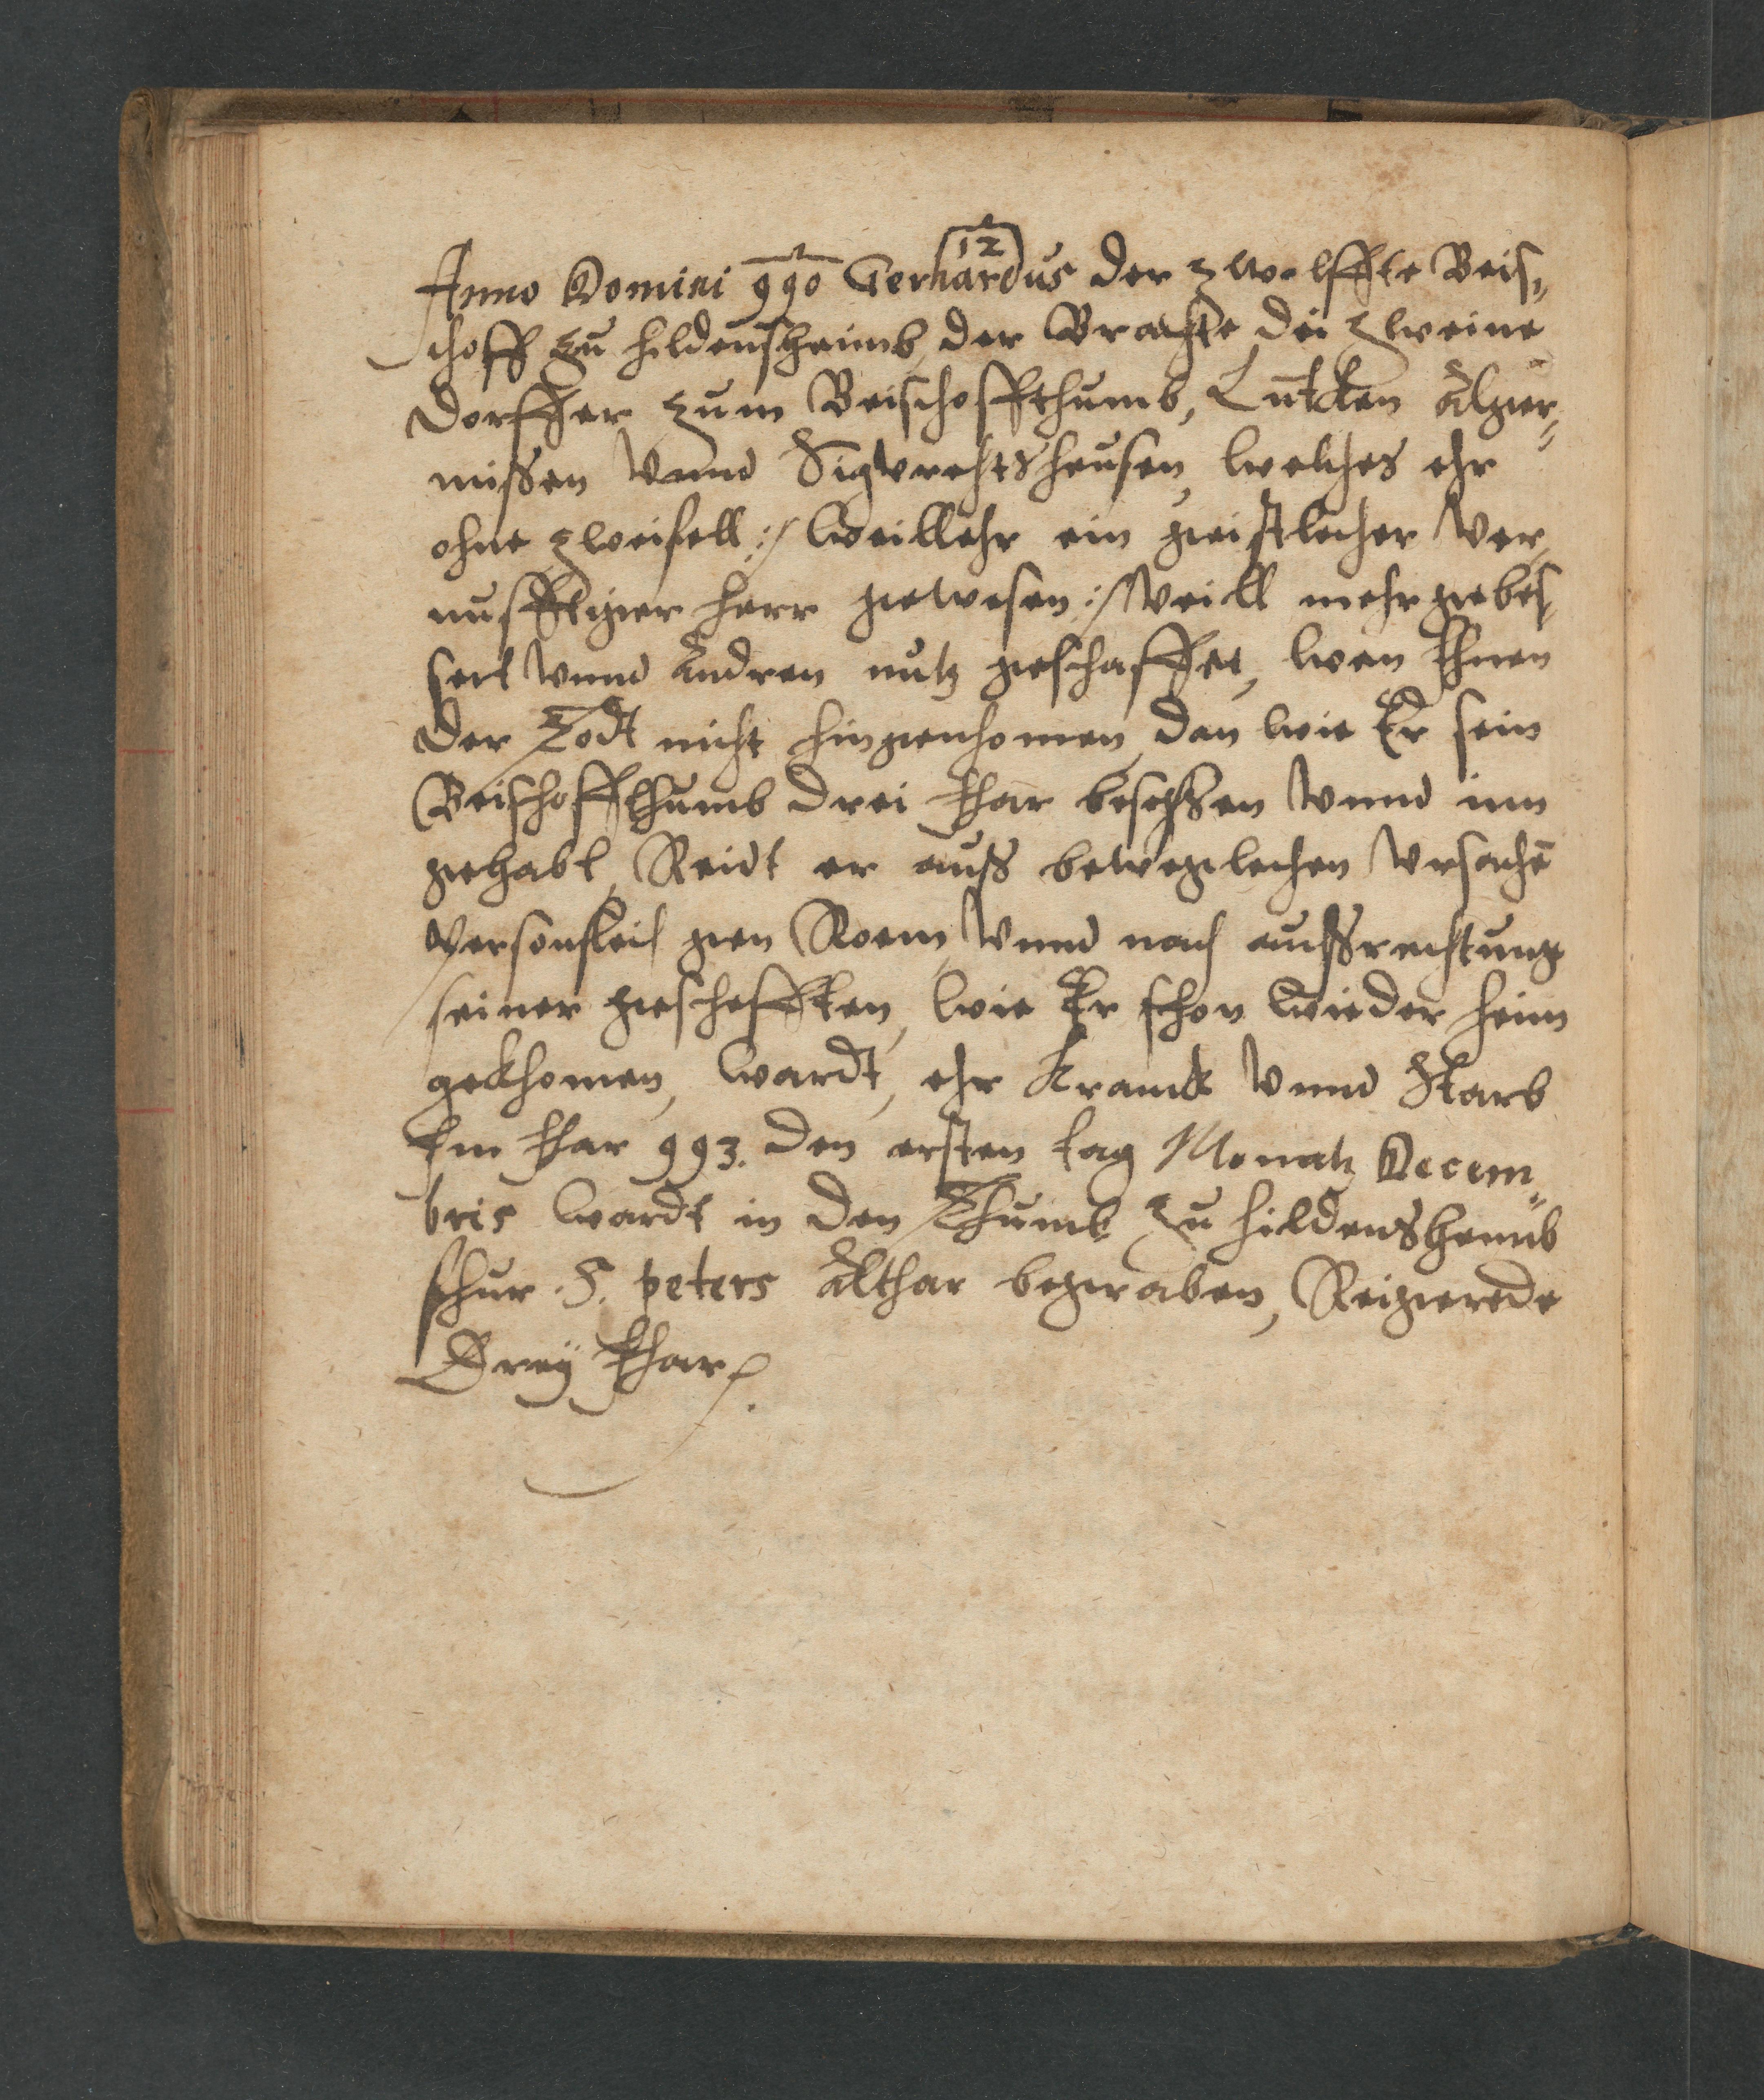 12
Anno Domini 990 Gerhardus der zwolffte Beis„
choff zu hildensheimb, der Brachte die zweine
dorffer zum Beischoffthumb, Lutcken Algier„
mißen Vnnd Sigvrehtshausen, welches ehr
ohne zweifell :/ weill ehr ein geistlecher Ver„
nufftiger herr gewesen :/ Veill mehr gebes„
sert Vnnd Andren nutz geschaffet, wen Ihnen
der Todt nicht hingenhomen, dan wie Er sein
Beischoffthumb drei Ihar beseßen Vnnd inn
gehabt, Reidt er auß bewegelechen Vrsachē
Personsleich gen Roem, Vnnd nach außrechtung
seiner gescheffken, wie Er schon wieder heim
gekhomen, wardt, ehr Kranck Vnnd Starb
Im Ihar 993. den ersten tag Monatz Decem„
bris wardt in den Thumb zu hildenshemb
fhur S. peters Althar begraben, Reigierede
Dreÿ Ihar.